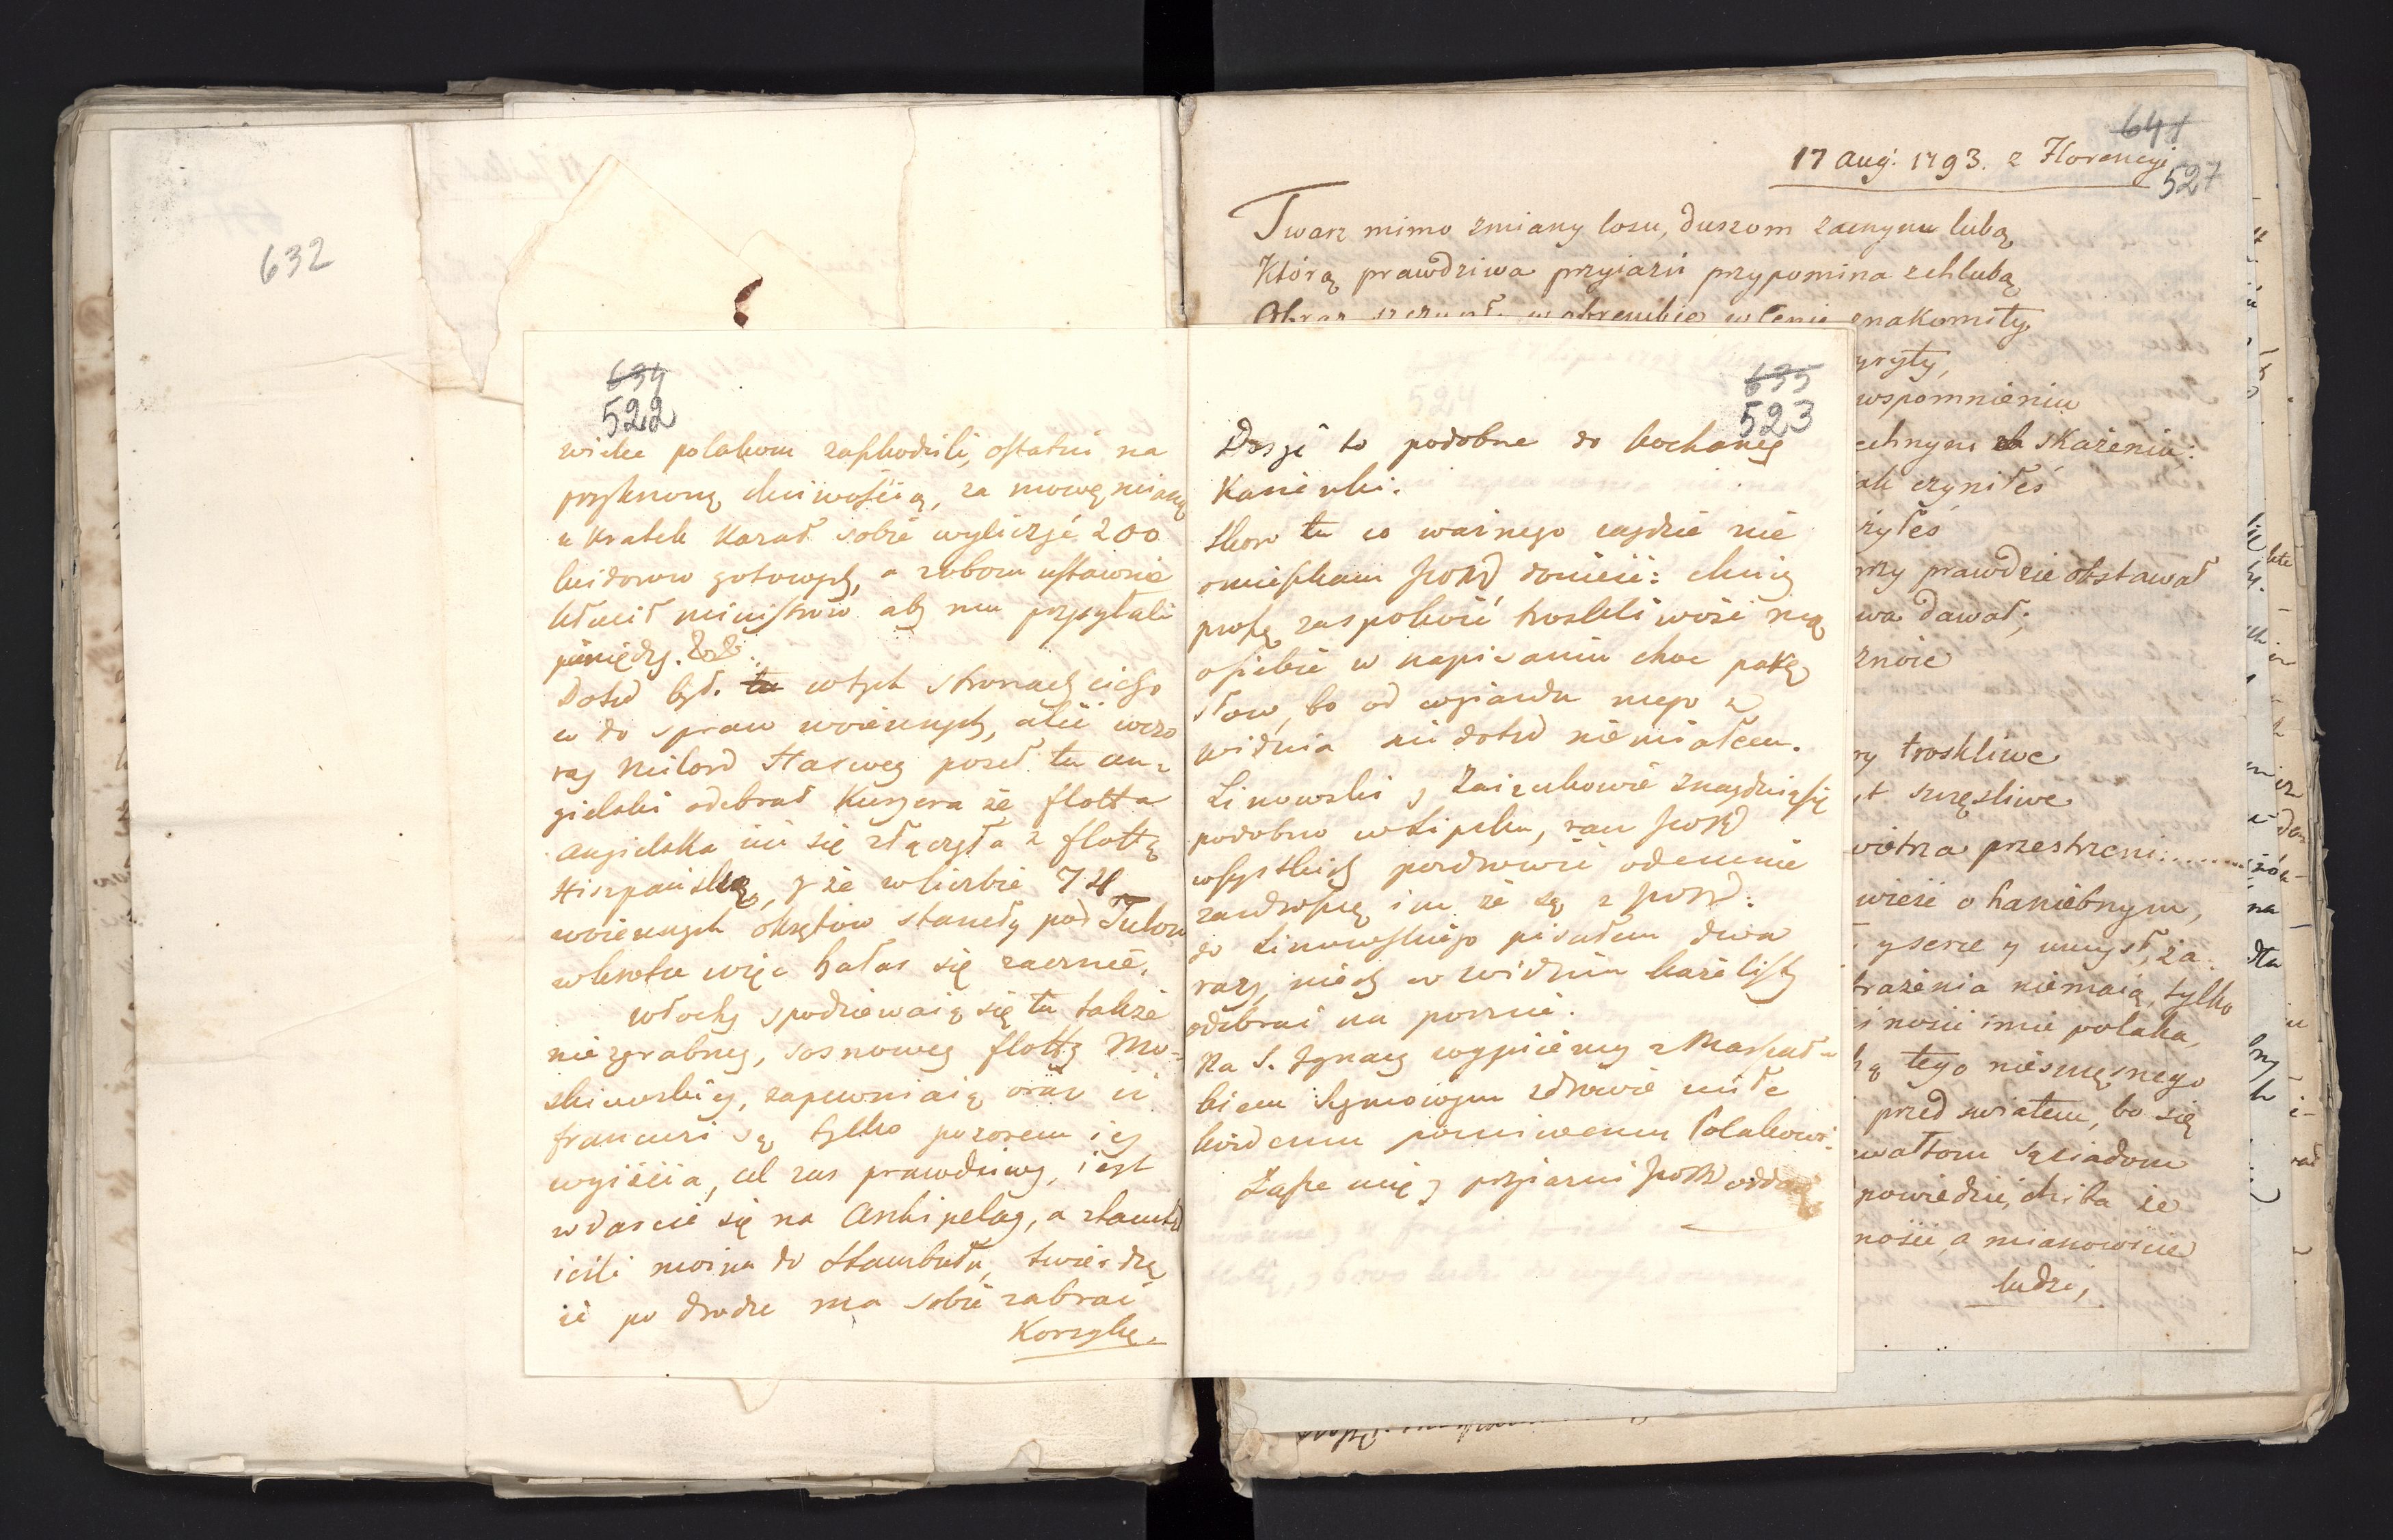 632
634
522
wiele polakom zaszkodzili, ostatni na
przyknoną chciwością, za mowę mianą
u kratek kazał sobie wyliczyć 200
luidorow gotowych, a
ministrow aby mu przysyłali
pieniędzy.
Dotąd był. tu w tych stronach cicho
co do spraw woiennych, ali wczo
ray Milord Harwey poseł tu an-
gielski odebrał Kuryera że flotta
angielska iuż się złączyła z flottą
Hiszpańską, y że w liczbie 74
woiennych okrętow stanęły pod Tulon
wkrotce więc hałas się zacznie.
włochy spodziewaią się tu także
niezgrabney, sosnowey flotty Mo-
skiewskiey, zapewniaią oraz iż
francuzi są tylko pozorem iey
wyiścia, cel zas prawdziwy, iest
wdarcie się na Archipelag, a ztamtąd
ieśli można do Stambułu, twierdzą
że po drodze ma sobie zabrać
Korsykę.
635
523
Dosyć to podobne do kochaney
Kasieńki.
Skoro tu co ważnego zaydzie nie
omieszkam donieść: chciey
proszę zaspokoić troskliwość mą
o siebie w napisaniu choc parę
słow, bo od wyiazdu mego z
widnia nic dotąd nie miałem.
Linowski y Zaiączkowie znayduią się
podobno w Lipsku, racz
wszystkich pozdrowić odemnie
zazdroszczę im że są z
do Linowskiego pisałem dwa
razy, niech w widniu każe listy
odebrać na poczcie.
Na S. Ignacy wypiiemy z Marszał-
kiem Seymowym zdrowie miłe
każdemu poczciwemu Polakowi.
Łasce mię y przyiazni oddaię
641
17 Aug. 1793. z Florencyi
527
Twarz mimo zmiany losu, duszom zacnym lubą
Którą prawdziwa przyiazń przypomina z chlubą
Obraz w obrembie w Cenie znakomity
yryty,
wspomnieniu
echnym skażeniu.
ak czyniłeś
żyłeś
rzy prawdzie obstawał
wa dawał;
znoie
ry troskliwe
t szczęsliwe
wietrza przestrzeni........
wieść o haniebnym,
y serce y umysł, ża
trażenia niemaią, tylko
i nosić imie polaka,
ą tego nieszczęsnego
przed swiatem, bo się
wałtom sąsiadom
powiedzieć, chiba że
ności, a mianowicie
ludzi,